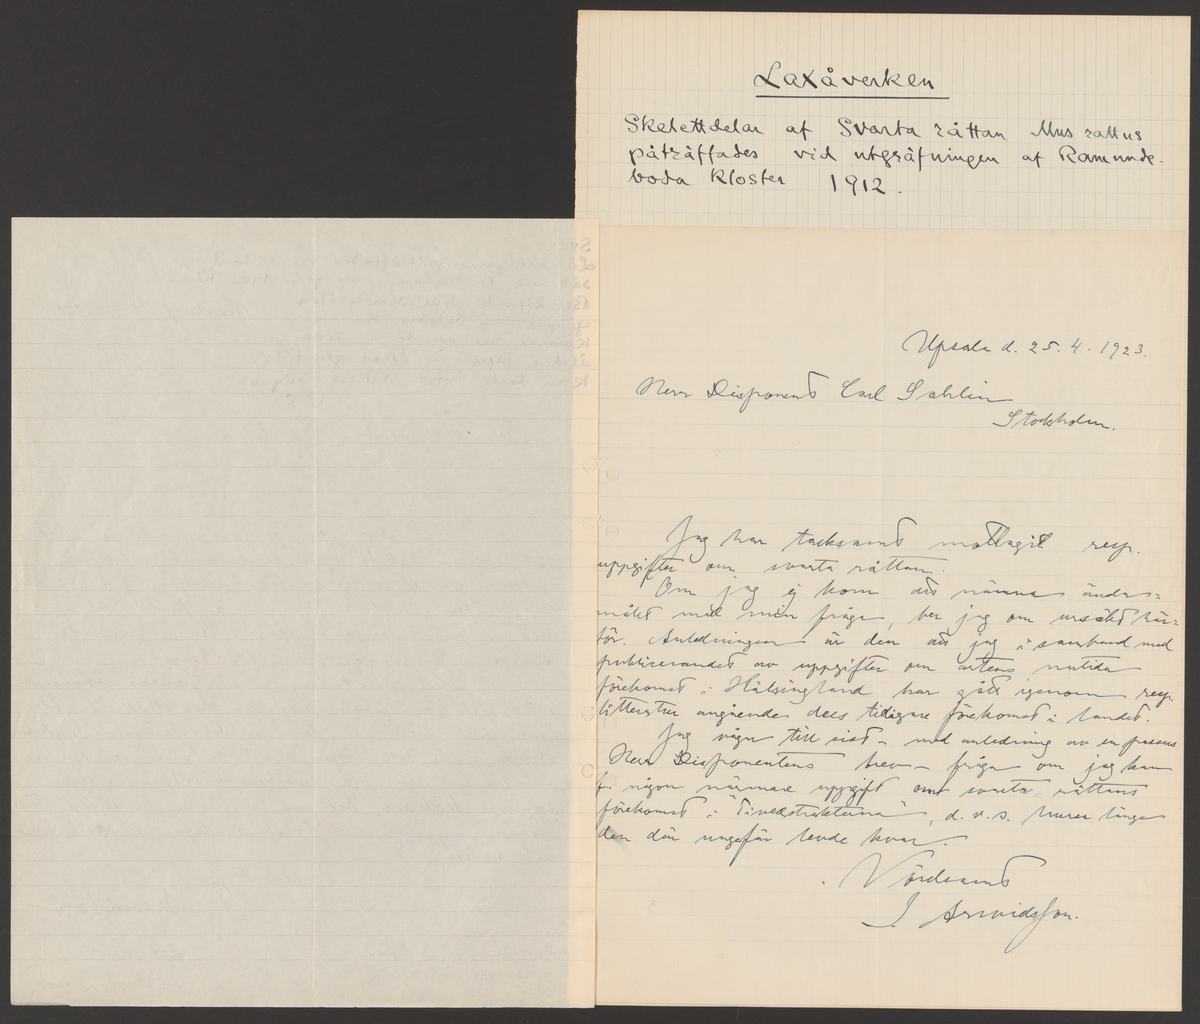 Laxåverken
Skelettdelar af Svarta råttan Mus rattus
påträffades vid utgräfningen af Ramunde-
boda Kloster 1912.
Upsala d. 25.4.1923.
Herr Disponent Carl Sahlin
Stockholm.
Jag har tacksamt mottagit resp.
uppgifter om svarta råttan.
Om jag ej kom att nämna ända-
målet med min fråga, ber jag om ursäkt här-
för. Anledningen är den att jag i samband med
publicerandet av uppgifter om artens nutida
förekomst i Hälsingland har gått igenom resp.
litteratur angående dess tidigare förekomst i landet.
Jag vågar till sist – med anledning av en passus
Herr Disponentens brev – fråga om jag kan
få någon närmare uppgift om svarta råttans
förekomst i "Tivedstrakterna", d.v.s. huru länge
den där ungefär levde kvar.
Vördsamt
I. Arwidsson.